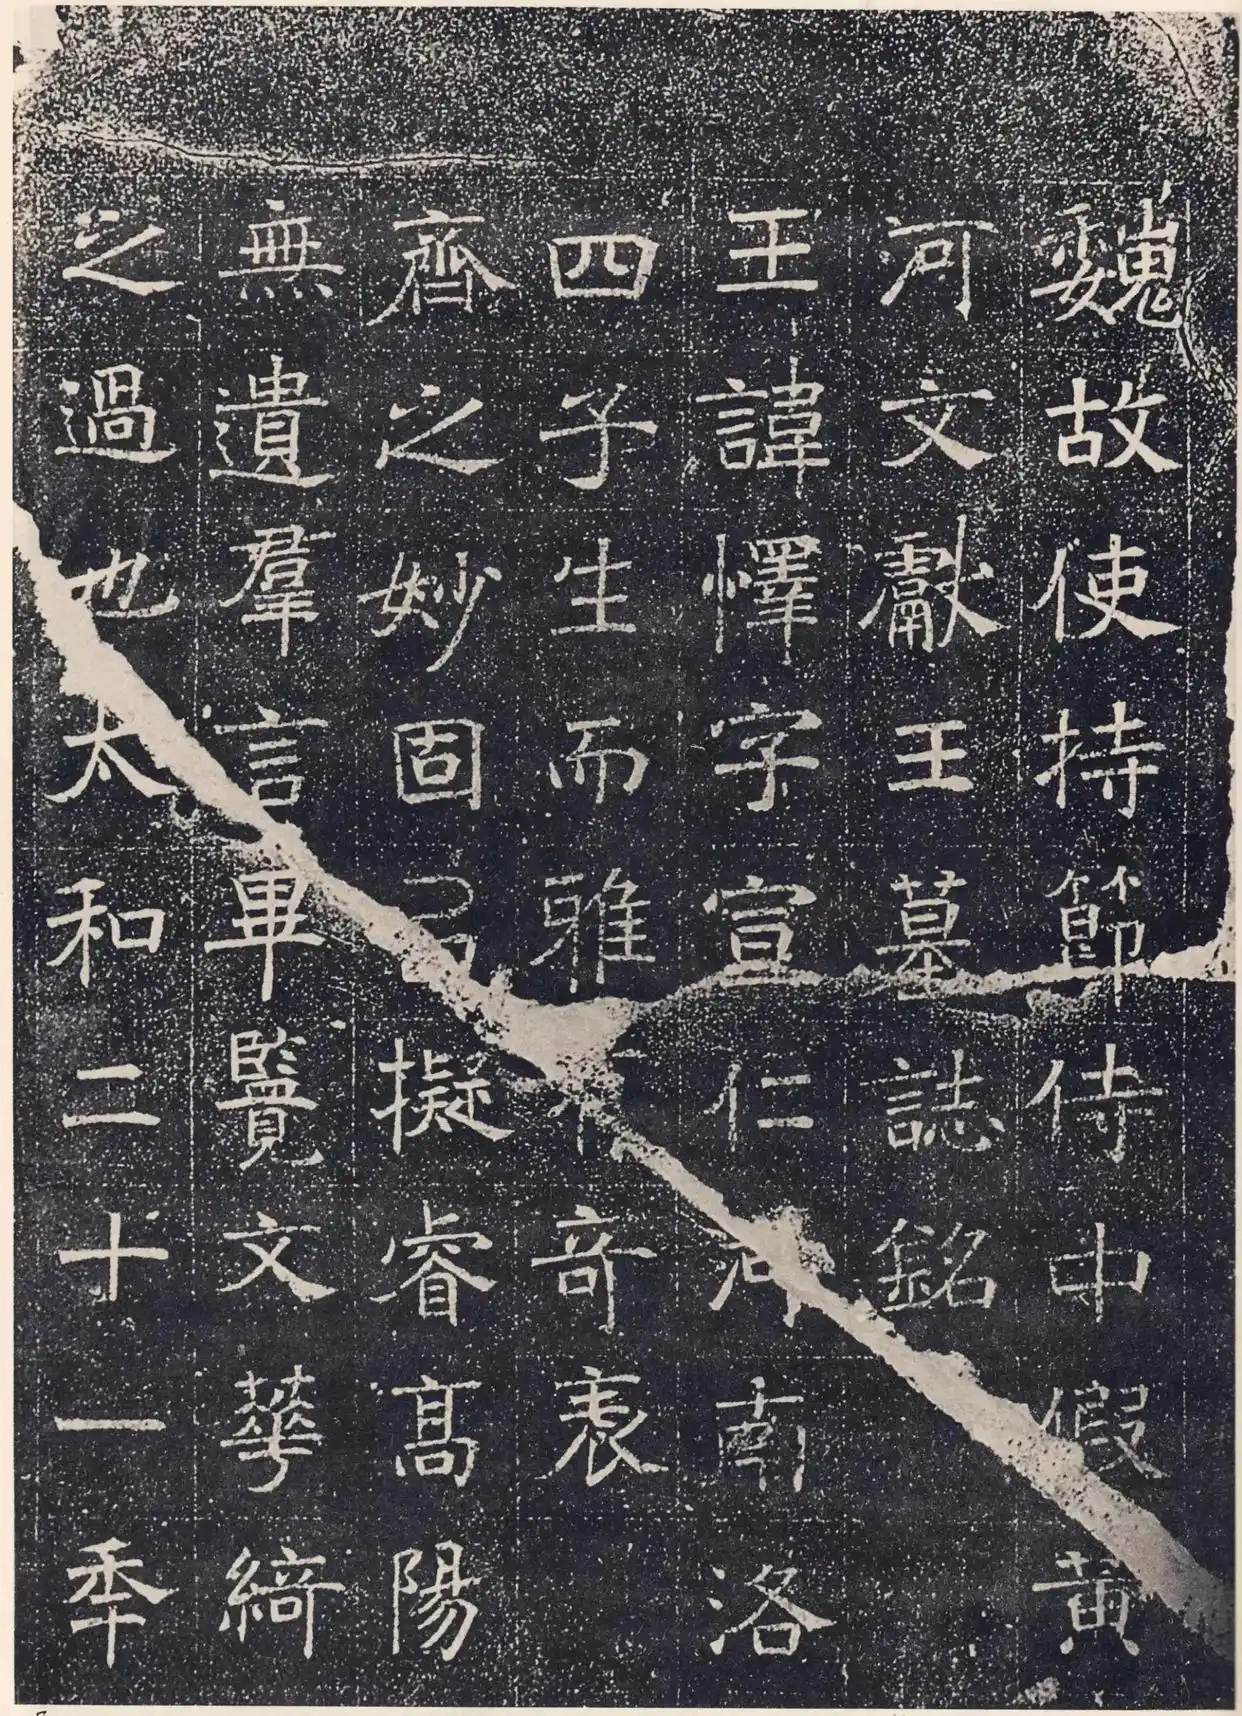 魏故使持節侍中假黄
河文獻王墓誌銘
王諱懌字宣仁河南洛
四子生而雅有奇表
齊之妙固已擬睿髙陽
無遺羣言畢覽文華綺
之過也太和二十一秊